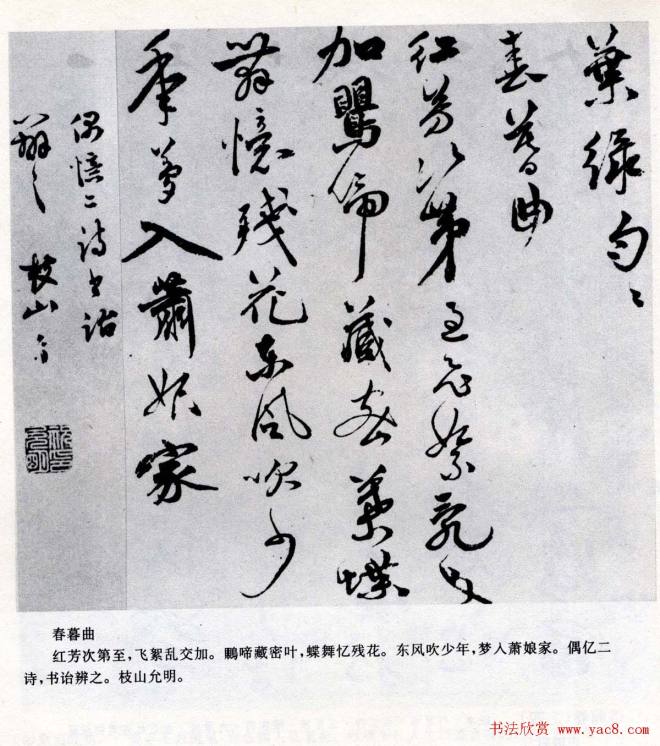 葉緑匀々
春暮曲
紅芳次第至飛絮亂交
加鸎啼藏密葉蝶
舞憶残花東風吹少
年夢入蕭娘家
偶憶二詩書詒
辨之 枝山
春暮曲
红芳次第至，飞絮乱交加。鹏啼藏密叶，蝶舞忆残花。东风吹少年，梦入萧娘家。偶亿二
诗，书诒辨之。枝山允明。
书法欣赏 www.yac8.com